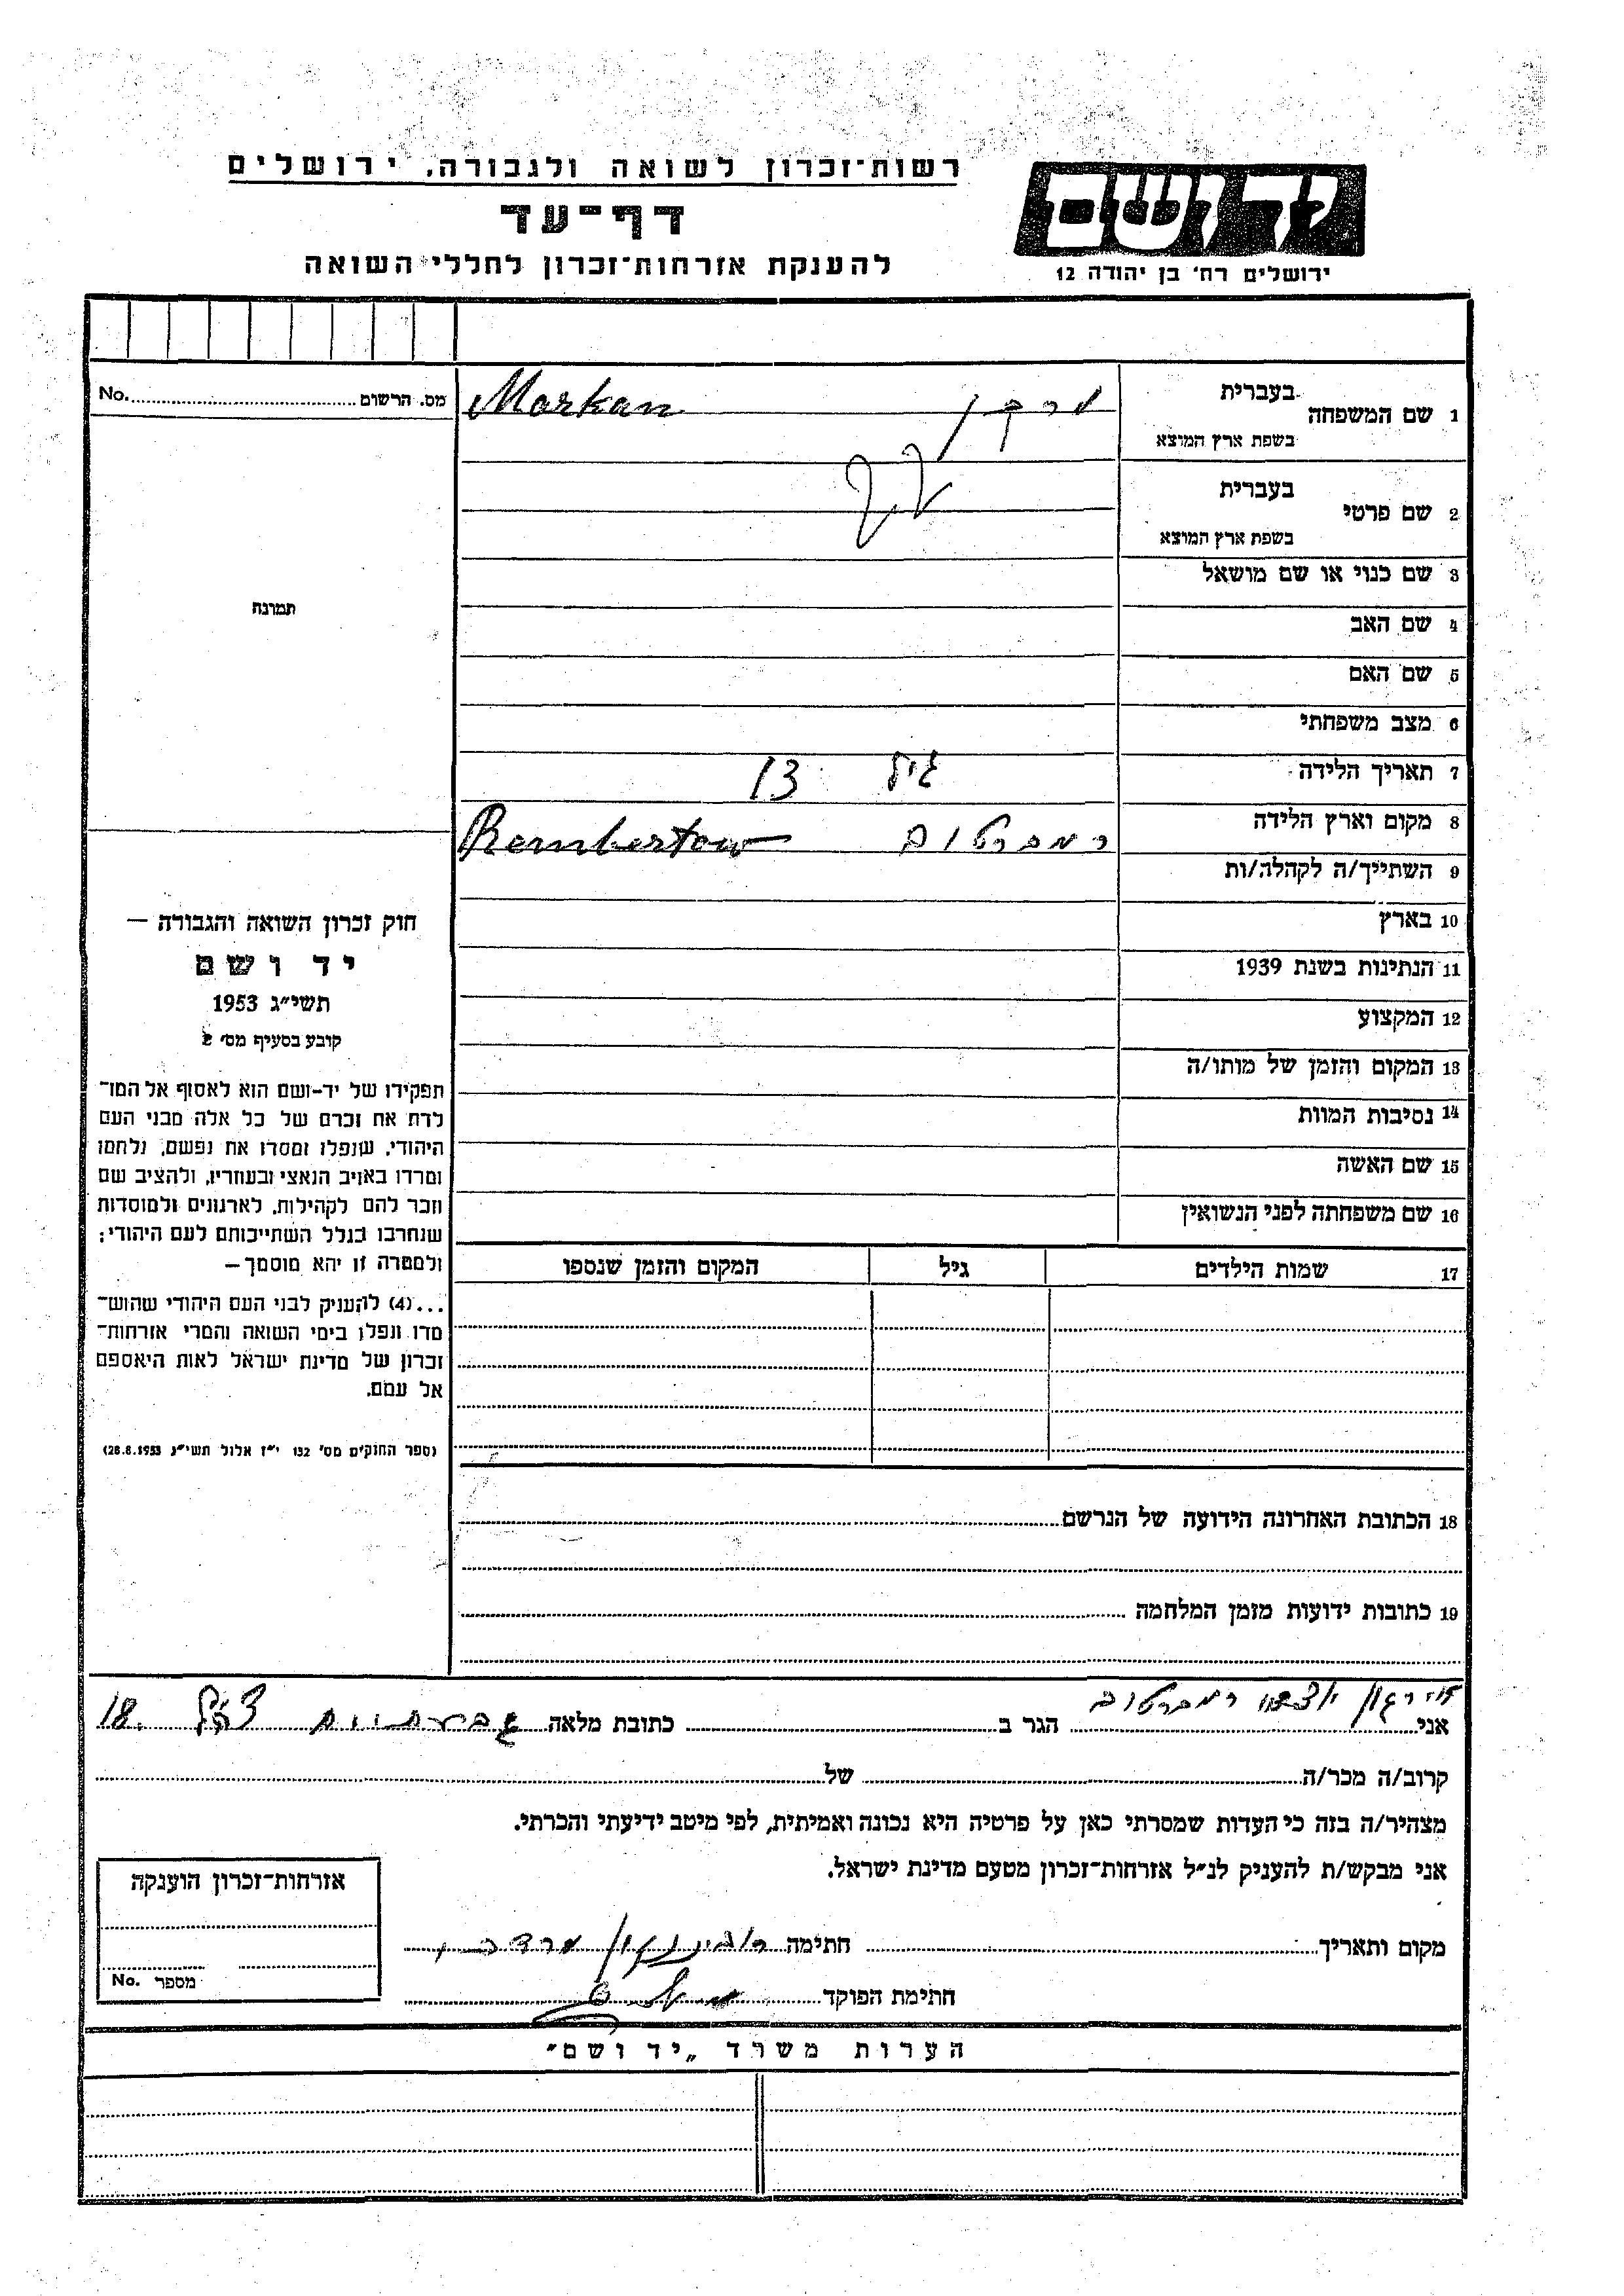 רשות־זכרון לשואה ולגבורה, ירושלים
דף־עד
להענקת אזרחות־זכרון לחללי השואה
יד ושם
ירושלים רח' בן יהודה 12
מס. הרשום No.
תמונה
1 שם המשפחה בעברית מרקן Markan
בשפת ארץ המוצא
2 שם פרטי בעברית
בשפת ארץ המוצא
3 שם כנוי או שם מושאל
4 שם האב
5 שם האם
6 מצב משפחתי
7 תאריך הלידה גיל 13
8 מקום וארץ הלידה רמברטוב Rembertow
9 השתייך/ה לקהלה/ות
10 בארץ
11 הנתינות בשנת 1939
12 המקצוע
13 המקום והזמן של מותו/ה
14 נסיבות המוות
15 שם האשה
16 שם משפחתה לפני הנשואין
17 שמות הילדים גיל המקום והזמן שנספו
חוק זכרון השואה והגבורה —
יד ושם
תשי״ג 1953
קובע בסעיף מס' 2
תפקידו של יד-ושם הוא לאסוף אל המו־
לדת את זכרם של כל אלה מבני העם
היהודי, שנפלו ומסרו את נפשם, נלחמו
ומרדו באויב הנאצי ובעוזריו, ולהציב שם
וזכר להם לקהילות, לארגונים ולמוסדות
שנחרבו בגלל השתייכותם לעם היהודי;
ולמטרה זו יהא מוסמך —
...(4) להעניק לבני העם היהודי שהוש־
מדו ונפלו בימי השואה והמרי אזרחות־
זכרון של מדינת ישראל לאות היאספם
אל עמם.
(ספר החוקים מס' 132 י״ז אלול תשי״ג 28.8.1953)
18 הכתובת האחרונה הידועה של הנרשם
19 כתובות ידועות מזמן המלחמה
אני ארגון יוצאי רמברטוב הגר ב כתובת מלאה גבעתיים צה״ל 18
קרוב/ה מכר/ה של
מצהיר/ה בזה כי העדות שמסרתי כאן על פרטיה היא נכונה ואמיתית, לפי מיטב ידיעתי והכרתי.
אני מבקש/ת להעניק לנ״ל אזרחות־זכרון מטעם מדינת ישראל.
מקום ותאריך חתימה מרדכי
חתימת הפוקד
אזרחות־זכרון הוענקה
מספר No.
הערות משרד „יד ושם״